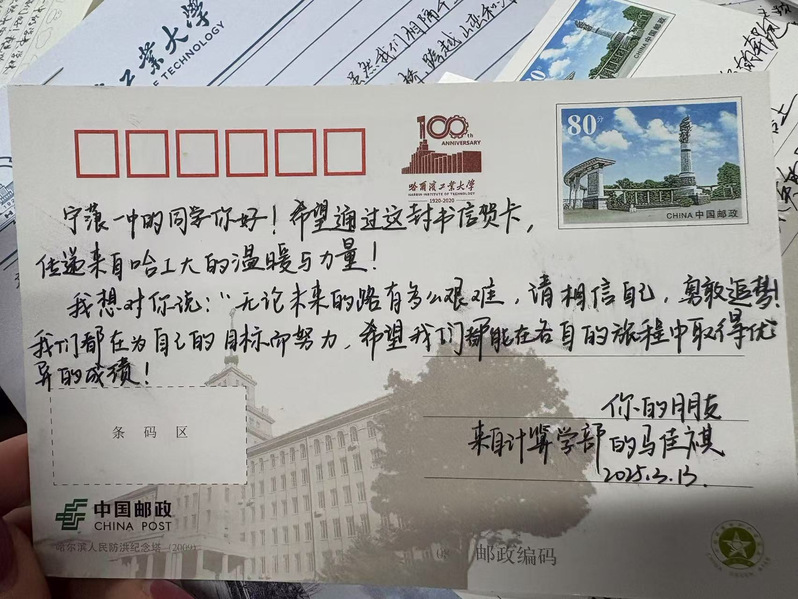 工业大学
OF TECHNOLOGY
虽然我们相隔千
桥，跨越山
80
100th
ANNIVERSARY
哈爾濱工業大學
HARBIN INSTITUTE OF TECHNOLOGY
1920-2020
80分
CHINA 中国邮政
宁蒗一中的同学你好！希望通过这封书信贺卡，
传递来自哈工大的温暖与力量！
我想对你说：“无论未来的路有多么艰难，请相信自己，勇敢追梦！
我们都在为自己的目标而努力，希望我们都能在各自的旅程中取得优
异的成绩！
你的朋友
来自计算学部的马佳祺
2025.3.13.
条码区
中国邮政
CHINA POST
哈尔滨人民防洪纪念塔（2009）
邮政编码